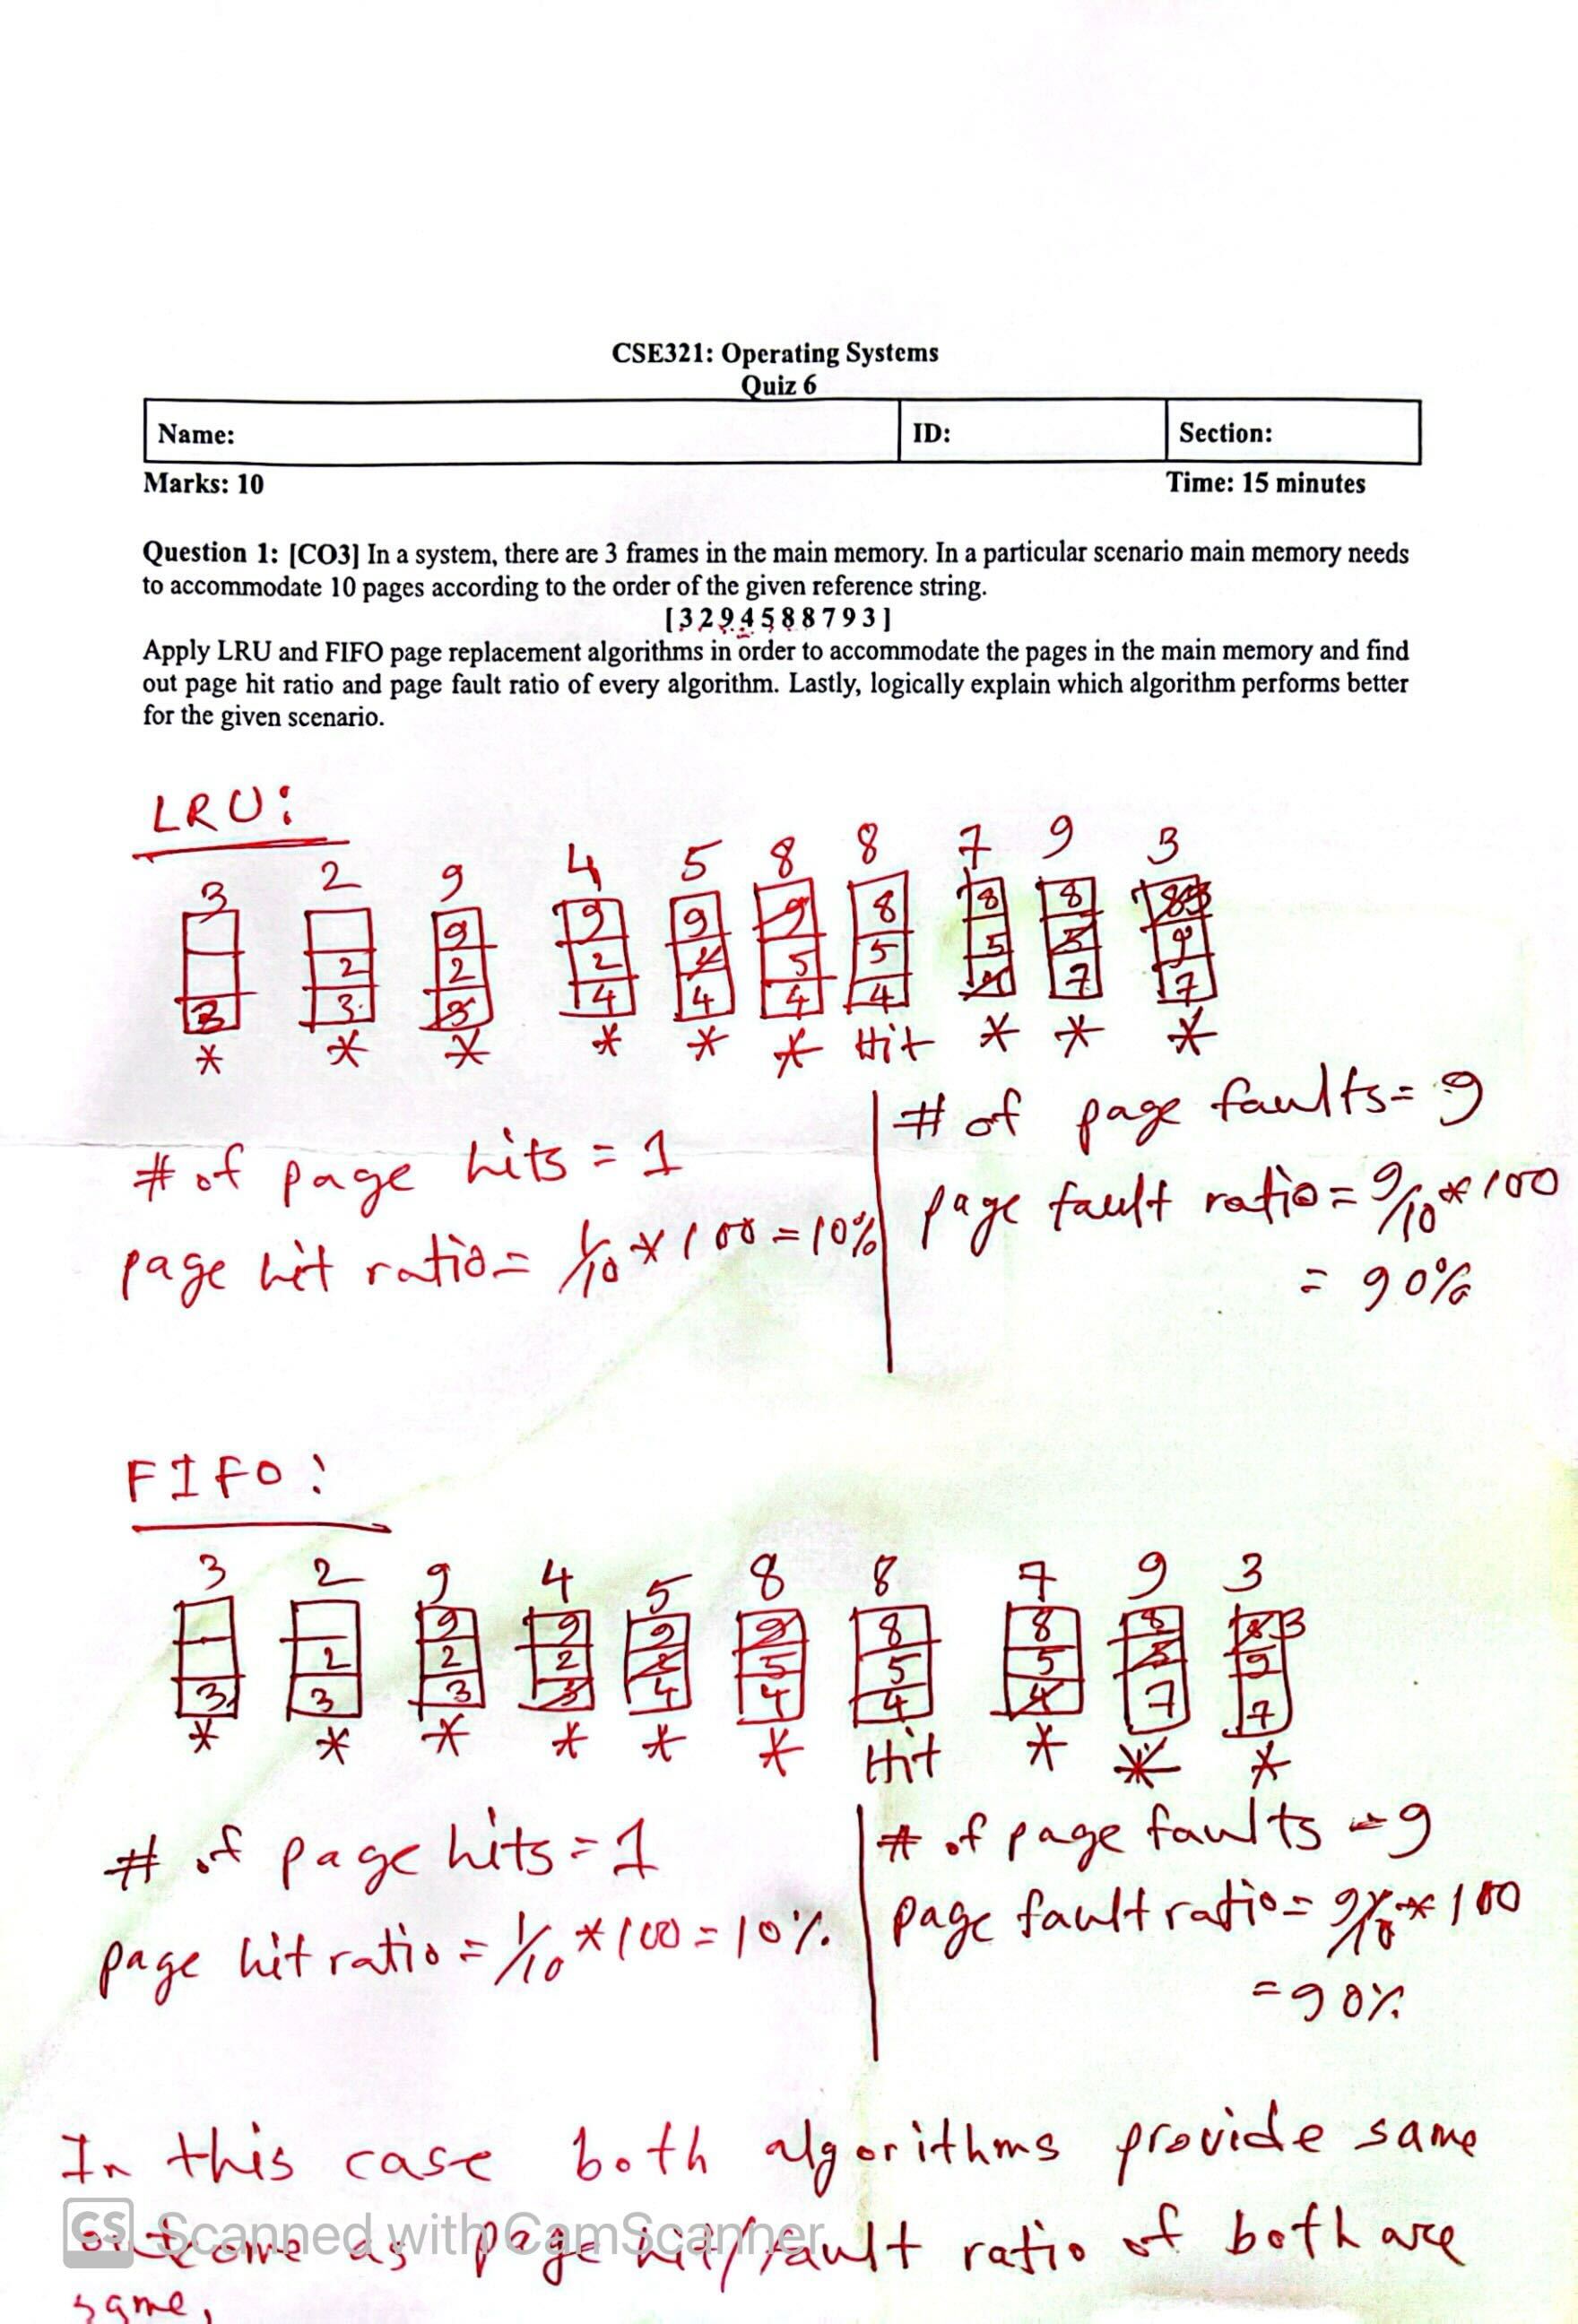 CSE321: Operating Systems
Quiz 6
Name: ID: Section:
Marks: 10 Time: 15 minutes
Question 1: [CO3] In a system, there are 3 frames in the main memory. In a particular scenario main memory needs
to accommodate 10 pages according to the order of the given reference string.
[3 2 9 4 5 8 8 7 9 3]
Apply LRU and FIFO page replacement algorithms in order to accommodate the pages in the main memory and find
out page hit ratio and page fault ratio of every algorithm. Lastly, logically explain which algorithm performs better
for the given scenario.
LRU:
3 2 9 4 5 8 8 7 9 3
9 9 9 9 8 8 8 3
2 2 2 5 5 5 9
3 3 4 4 4 4 7 7
* * * * * * Hit * * *
# of page hits = 1
page hit ratio = 1/10 * 100 = 10%
# of page faults = 9
page fault ratio = 9/10 * 100
= 90%
FIFO:
3 2 9 4 5 8 8 7 9 3
9 9 9 9 8 8 8 3
2 2 2 5 5 5 9
3 3 3 4 4 4 7 7
* * * * * * Hit * * *
# of page hits = 1
page hit ratio = 1/10 * 100 = 10%
# of page faults = 9
page fault ratio = 9/10 * 100
= 90%
In this case both algorithms provide same
outcome as page hit/fault ratio of both are
same.
CS Scanned with CamScanner